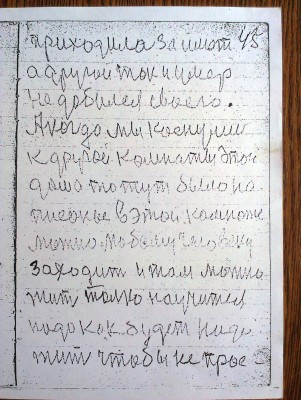 приходила за мной 45
а другой так и умер
не добился своего.
А когда мы
к другой комнаты этой
то тут было на
в этой комнате
можно любому человеку
заходить и там можно
жить толко научится
надо как будет надо
жить чтобы не